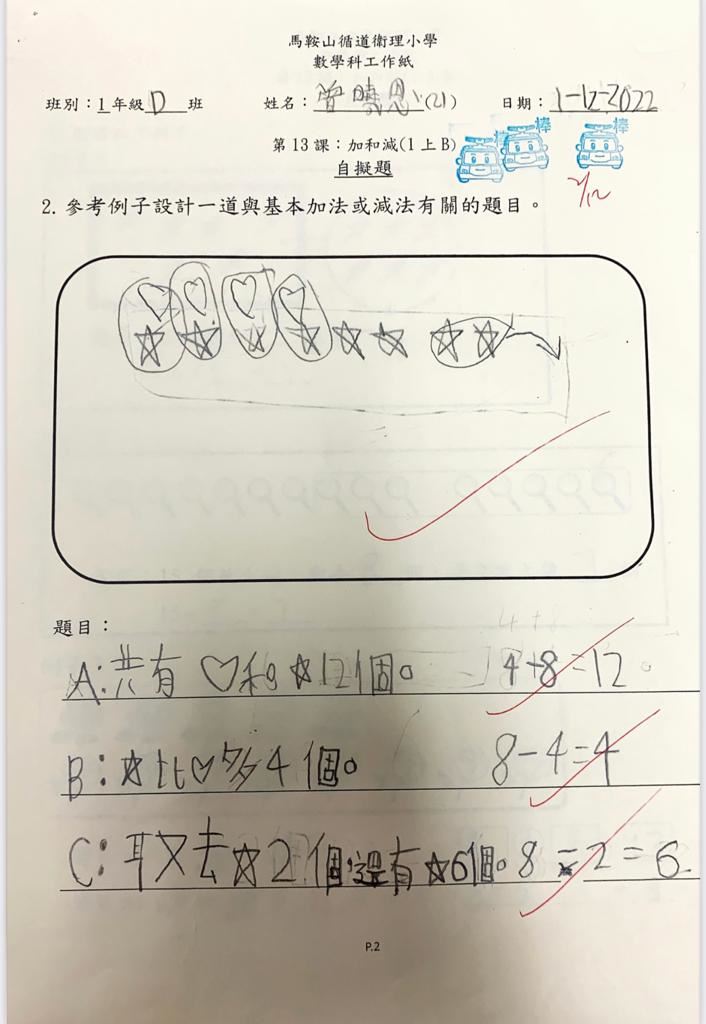 馬鞍山循道衛理小學
數學科工作紙
班別：1年級D班 姓名：曾曉恩(21) 日期：1-12-2022
第13課：加和減(1上B)
自擬題
棒 棒 棒
2/12
2. 參考例子設計一道與基本加法或減法有關的題目。
題目：
4+8
A:共有♡和☆12個。 4+8=12。
B:☆比♡多4個。 8-4=4
C:取去☆2個還有☆6個。8-2=6
P.2